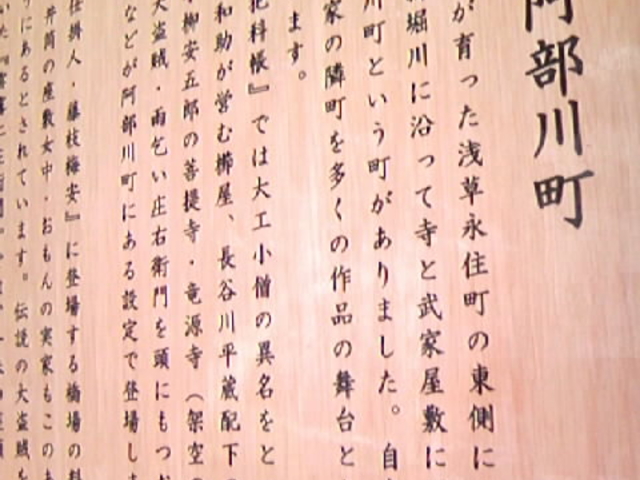 阿部川町
が育った浅草永住町の東側に
堀川に沿って寺と武家屋敷に
川町という町がありました。自
家の隣町を多くの作品の舞台と
ます。
犯科帳』では大工小僧の異名をと
和助が営む櫛屋、長谷川平蔵配下の
柳安五郎の菩提寺・竜源寺（架空の
大盗賊・雨乞い庄右衛門を頭にもつ
などが阿部川町にある設定で登場しま
仕掛人・藤枝梅安』に登場する橋場の料
井筒の座敷女中・おもんの実家もこのあ
りにあるとされています。伝説の大盗賊を